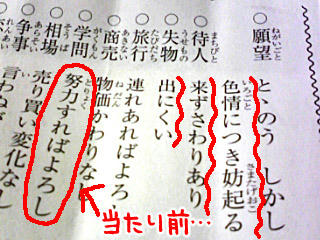 ねがいごと
○願望 とゝのう しかし
いろごと さまたげおこ
色情につき妨起る
まちびと
○待人 来ずさわりあり
うせもの
○失物 出にくい
たびだち
○旅行 連れあればよろ
あきない ねだん
○商売 物価かわりなし
がくもん どりょく
○学問 努力すればよろし
そうば
○相場 売り買い変化なし
あらそい
○争事 言わねが
当たり前…